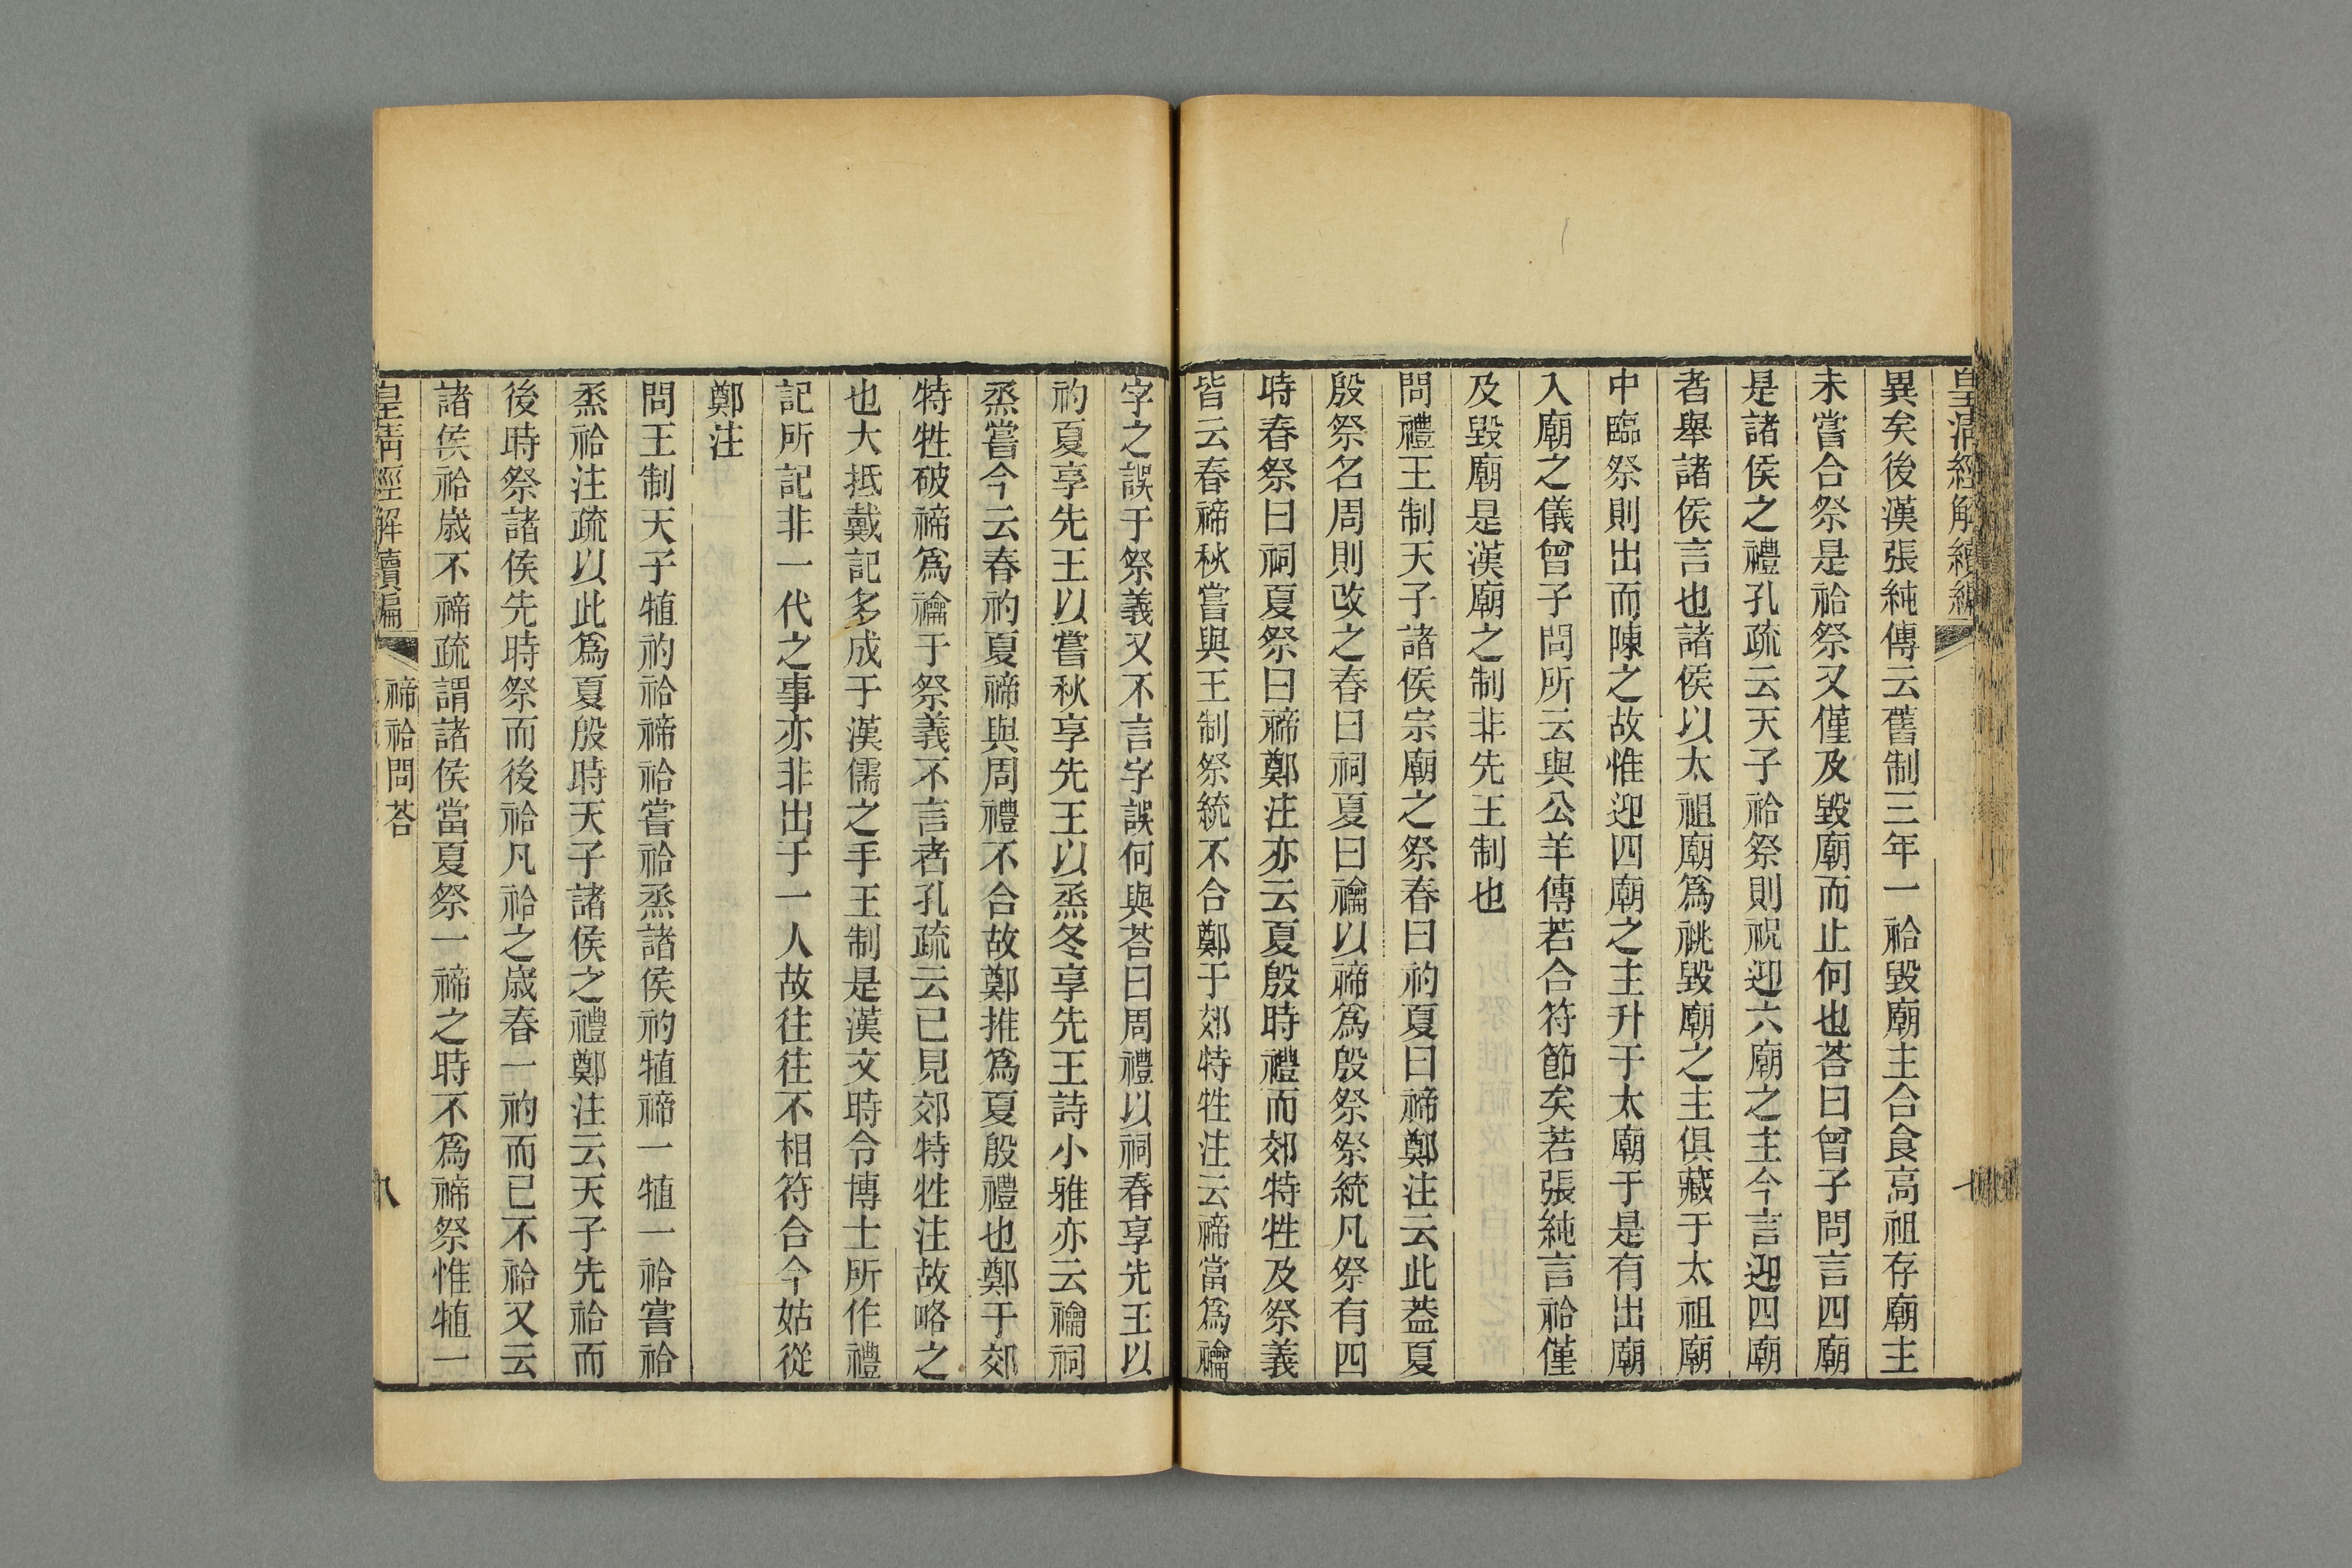 皇清經解續編
異矣後漢張純傳云舊制三年一祫毀廟主合食高祖存廟主
未嘗合祭是祫祭又僅及毀廟而止何也荅曰曾子問言四廟
是諸侯之禮孔疏云天子祫祭則祝迎六廟之主今言迎四廟
者舉諸侯言也諸侯以太祖廟爲祧毀廟之主俱藏于太祖廟
中臨祭則出而陳之故惟迎四廟之主升于太廟于是有出廟
入廟之儀曾子問所云與公羊傳若合符節矣若張純言祫僅
及毀廟是漢廟之制非先王制也
問禮王制天子諸侯宗廟之祭春曰礿夏曰禘鄭注云此葢夏
殷祭名周則改之春曰祠夏曰禴以禘爲殷祭祭統凡祭有四
時春祭曰祠夏祭曰禘鄭注亦云夏殷時禮而郊特牲及祭義
皆云春禘秋嘗與王制祭統不合鄭于郊特牲注云禘當爲禴
字之誤于祭義又不言字誤何與荅曰周禮以祠春享先王以
礿夏享先王以嘗秋享先王以烝冬享先王詩小雅亦云禴祠
烝嘗今云春礿夏禘與周禮不合故鄭推爲夏殷禮也鄭于郊
特牲破禘爲禴于祭義不言者孔疏云已見郊特牲注故略之
也大抵戴記多成于漢儒之手王制是漢文時令博士所作禮
記所記非一代之事亦非出于一人故往往不相符合今姑從
鄭注
問王制天子犆礿祫禘祫嘗祫烝諸侯礿犆禘一犆一祫嘗祫
烝祫注疏以此爲夏殷時天子諸侯之禮鄭注云天子先祫而
後時祭諸侯先時祭而後祫凡祫之歲春一礿而已不祫又云
諸侯祫歲不禘疏謂諸侯當夏祭一禘之時不爲禘祭惟犆一
皇清經解續編
禘祫問荅
八